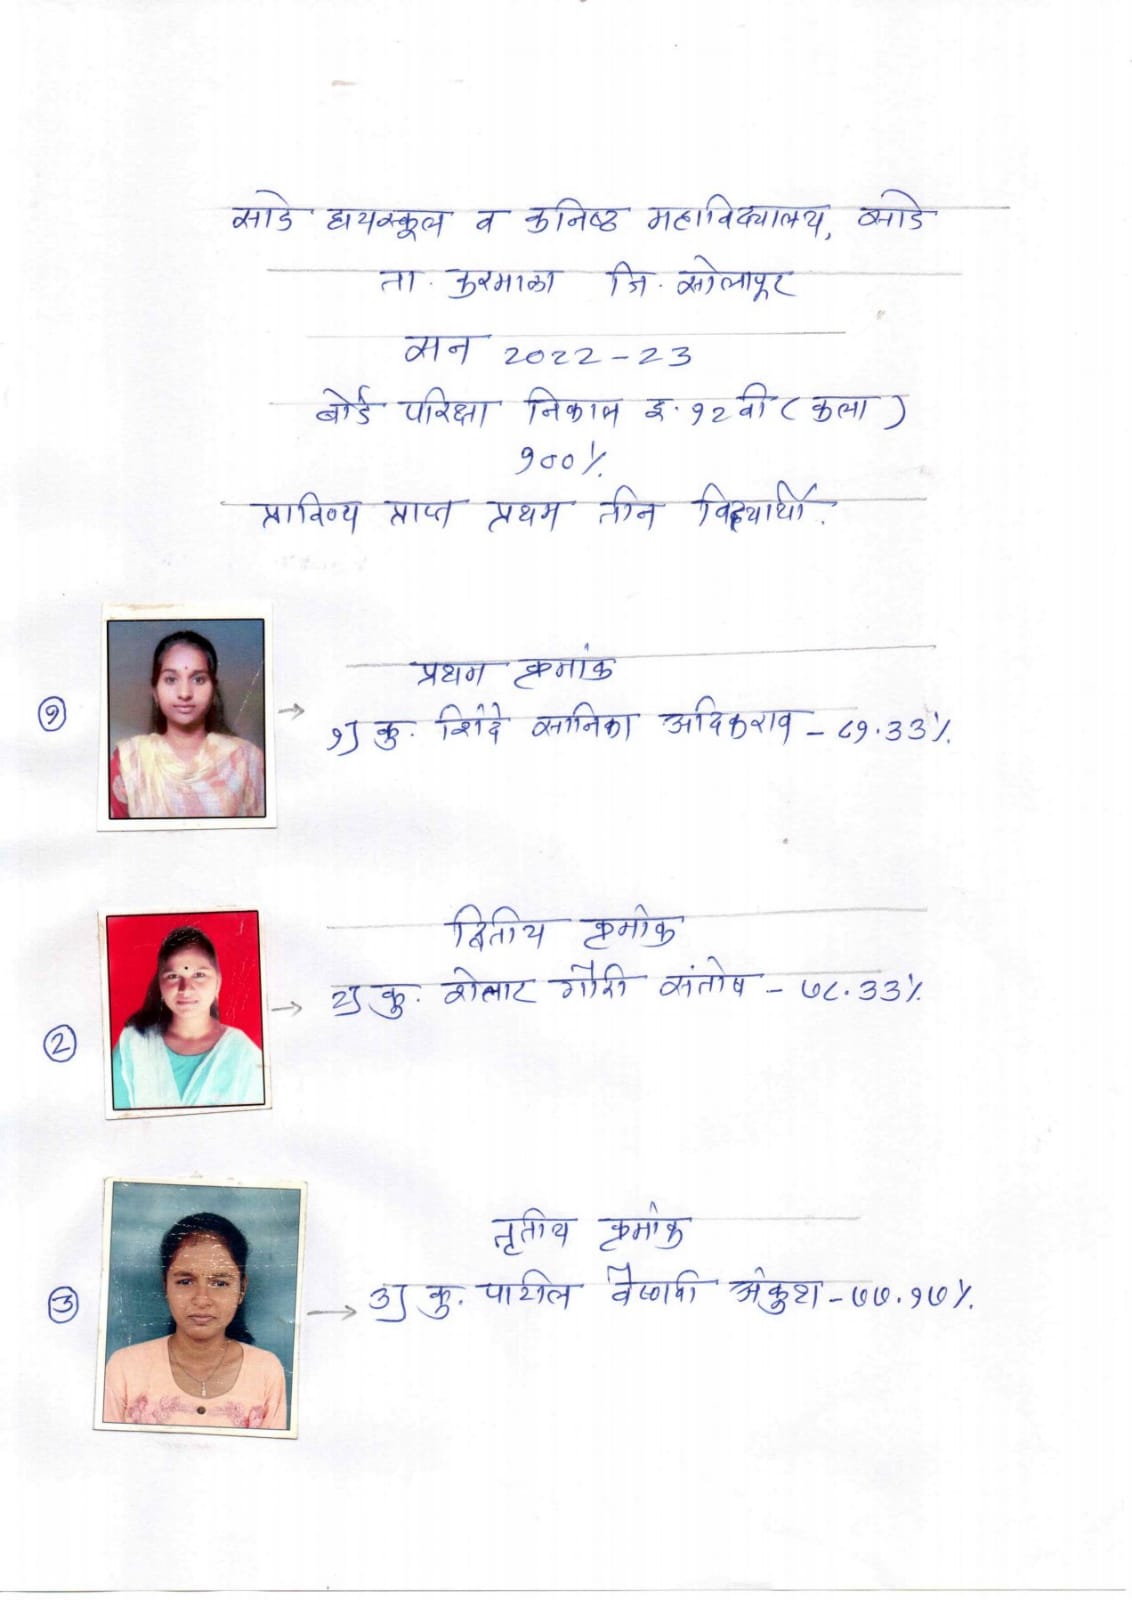 साडे हायस्कूल व कनिष्ठ महाविद्यालय, साडे
ता. करमाळा जि. सोलापूर
सन 2022-23
बोर्ड परिक्षा निकाल इ. १२ वी ( कला )
१००%
प्राविण्य प्राप्त प्रथम तीन विद्यार्थी.
प्रथम क्रमांक
१
१) कु. शिंदे सानिका अदिकराव - ८१.३३%
द्वितीय क्रमांक
२) कु. शेलार गौरी संतोष - ७८.३३%
२
तृतीय क्रमांक
३
३) कु. पाटील वैष्णवी अंकुश - ७७.१७%